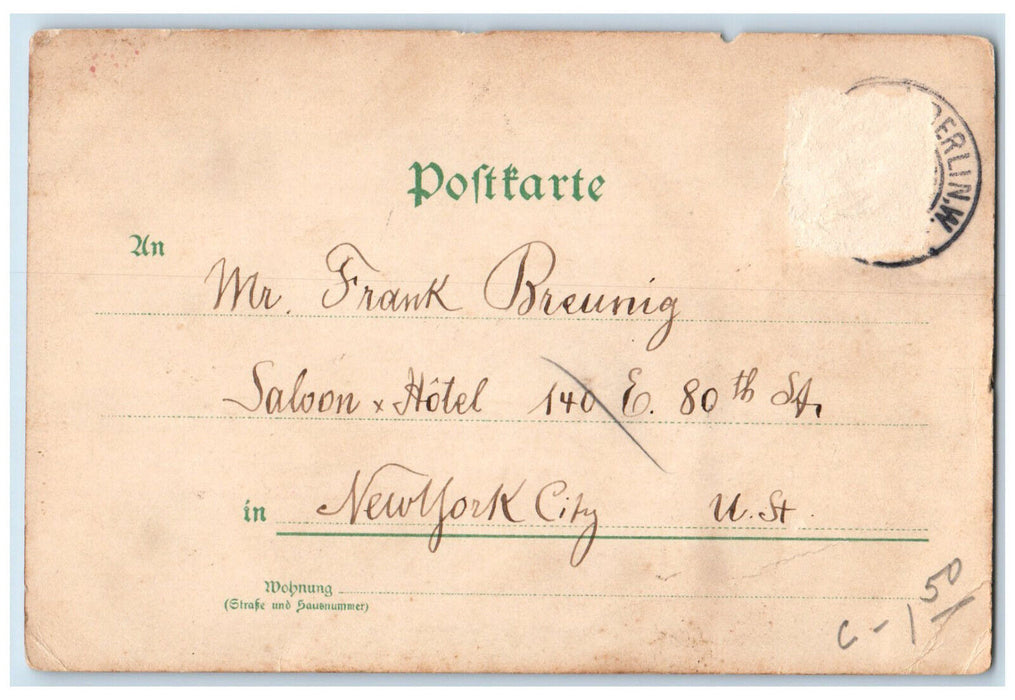 Postkarte
BERLIN.W.
An
Mr. Frank Breunig
Saloon x Hôtel 140 E. 80th St.
in NewYork City U. St.
Wohnung
(Straße und Hausnummer)
c - 1 50